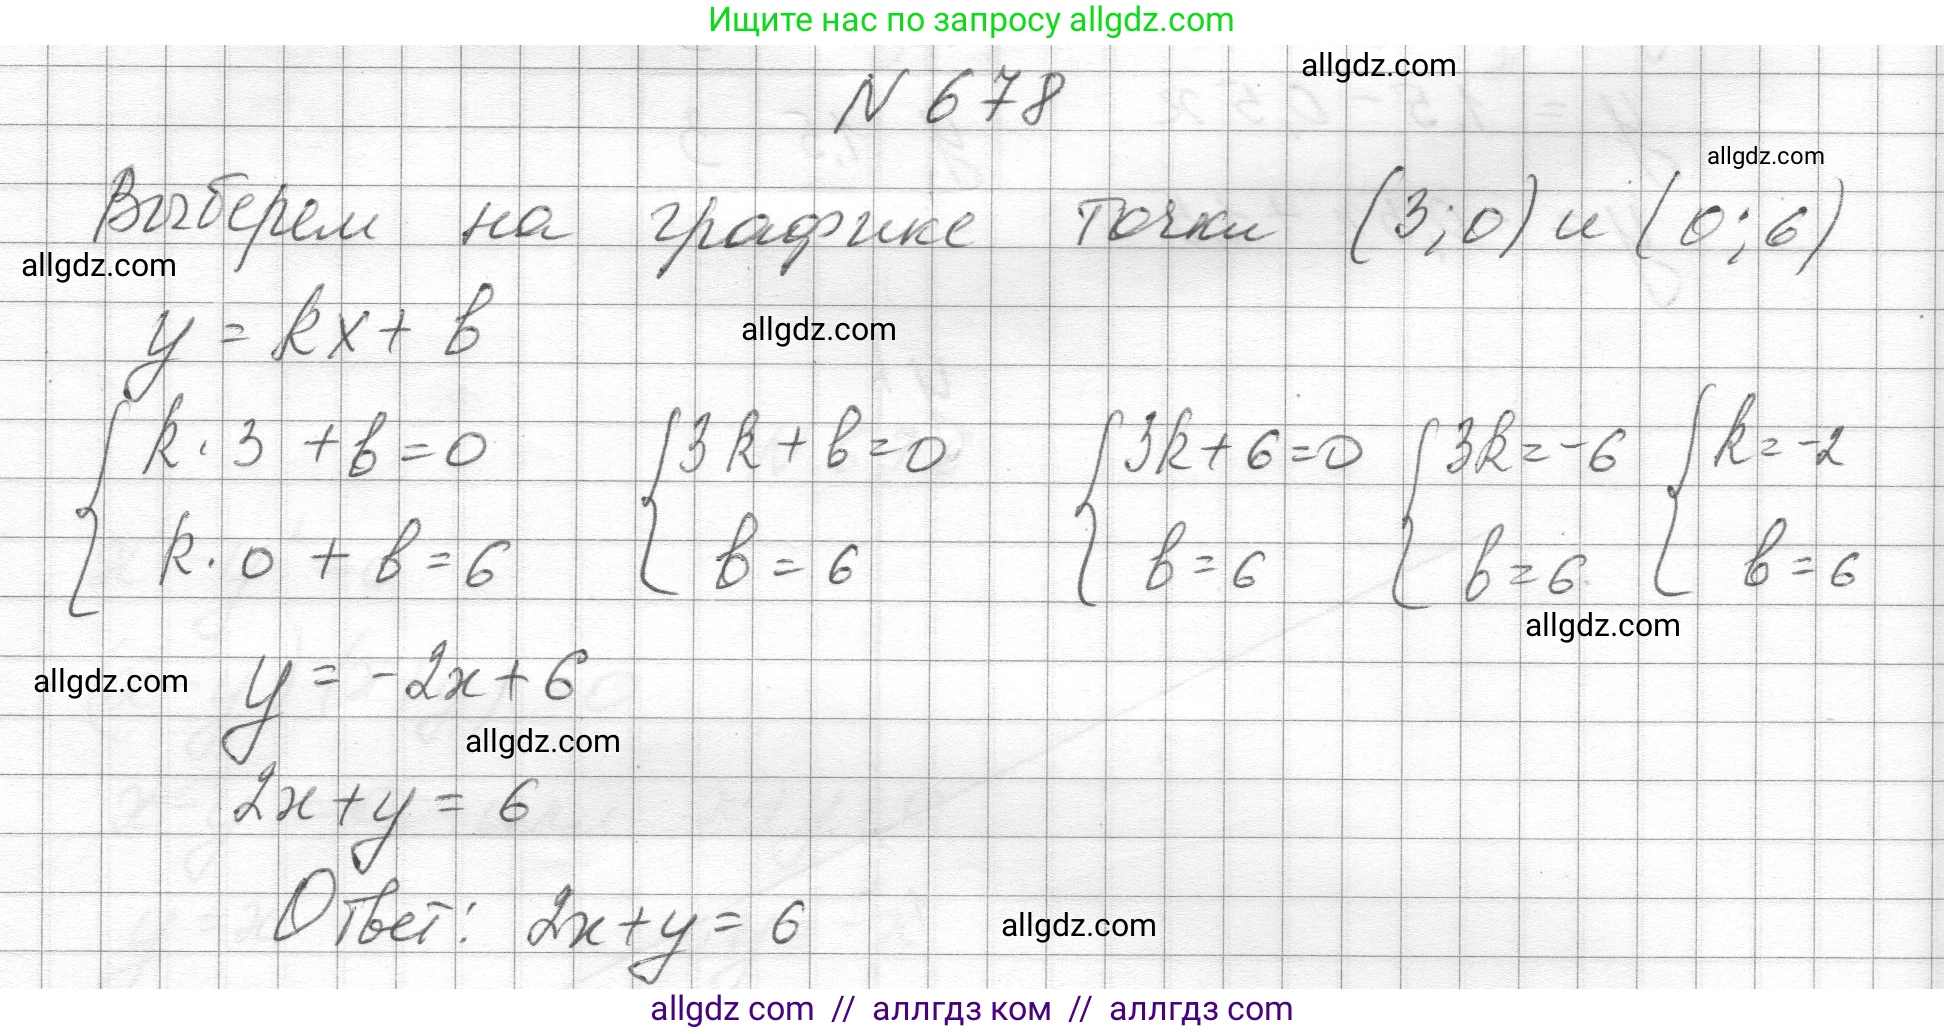 Ищите нас по запросу allgdz.com
allgdz.com
N 678
allgdz.com
Выберем на графике точки (3;0) и (0;6)
allgdz.com
y = kx + b
allgdz.com
{ k·3 + b = 0 { 3k + b = 0 { 3k + 6 = 0 { 3k = -6 { k = -2
k·0 + b = 6 b = 6 b = 6 b = 6 b = 6
allgdz.com
allgdz.com
y = -2x + 6
allgdz.com
2x + y = 6
Ответ: 2x + y = 6
allgdz.com
allgdz com // аллгдз ком // аллгдз com